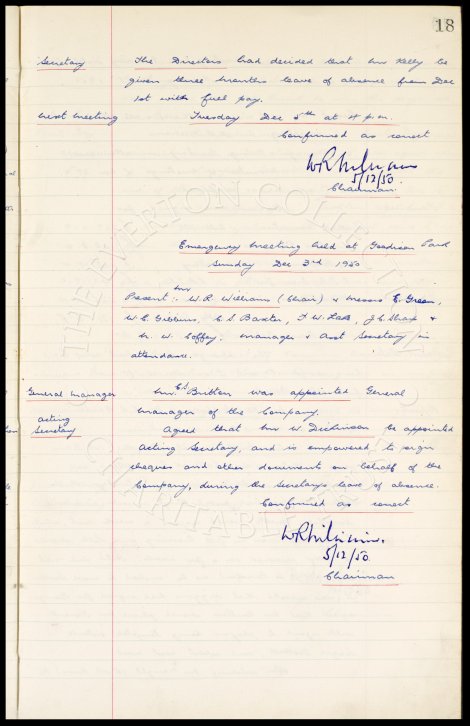 18
Secretary The Directors had decided that Mr Kelly be
given three months leave of absence from Dec
1st with full pay.
Next Meeting Tuesday Dec 5th at 4 p.m.
Confirmed as correct
W R Williams
5/12/50.
Chairman.
Emergency Meeting held at Goodison Park
Sunday Dec 3rd 1950
Present :- Mr W. R. Williams (Chair) & Messrs E. Green,
W. C. Gibbins, C. S. Baxter, J. C. Sharp &
N. W. Coffey. Manager & Asst Secretary in
attendance.
General Manager Mr. C S Britton was appointed General
Manager of the Company.
Acting Agreed that Mr W. Dickinson be appointed
Secretary Acting Secretary, and is empowered to sign
cheques and other document on behalf of the
Company, during the Secretary's leave of absence.
Confirmed as correct
W R Williams.
5/12/50.
Chairman
THE EVERTON COLLECTION
CHARITABLE